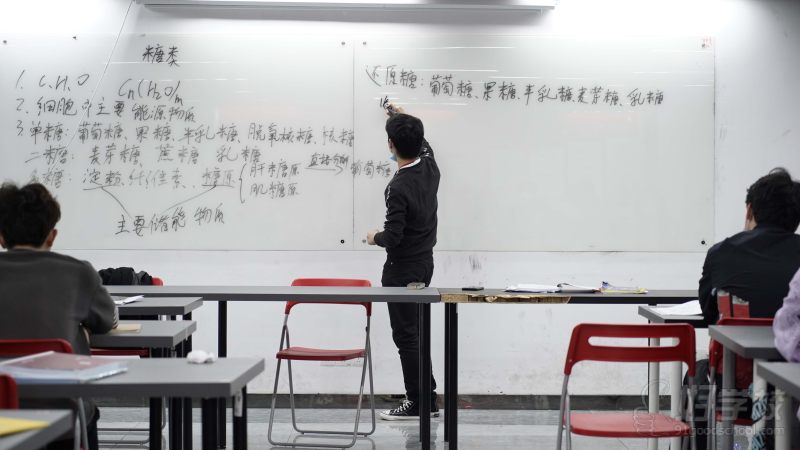 糖类
1. C、H、O  Cn(H2O)m
2. 细胞中主要能源物质
3. 单糖：葡萄糖、果糖、半乳糖、脱氧核糖、核糖
二糖：麦芽糖、蔗糖、乳糖
多糖：淀粉、纤维素、糖原
肝糖原 葡萄糖
肌糖原
主要储能物质
还原糖：葡萄糖、果糖、半乳糖、麦芽糖、乳糖
91goodschool.com